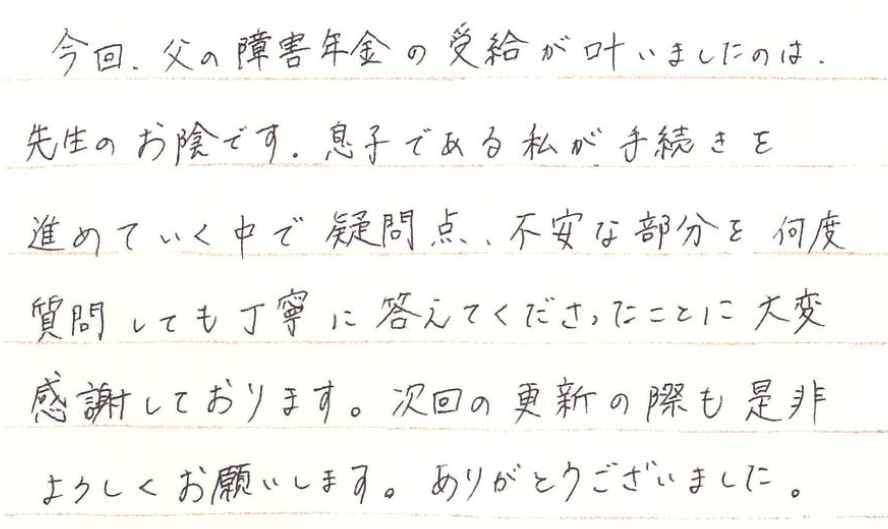 今回、父の障害年金の受給が叶いましたのは、
先生のお陰です。息子である私が手続きを
進めていく中で疑問点、不安な部分を何度
質問しても丁寧に答えてくださったことに大変
感謝しております。次回の更新の際も是非
よろしくお願いします。ありがとうございました。